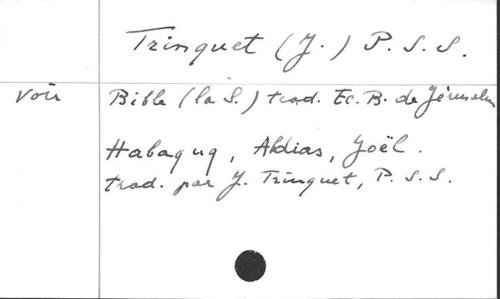 Trinquet (J.) P.S.S.
Voir Bible (la S.) trad. Ec. B. de Jérusalem
Habaquq, Abdias, Joël.
trad. par J. Trinquet, P.S.S.